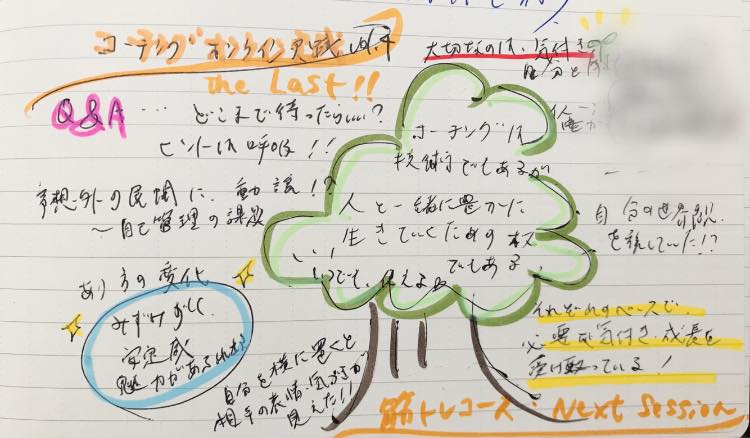 コーチングオンライン実践 vol.4
the Last!!
大切なのは、気付き
自分と
Q&A … どこまで待ったらいい?
ヒントは呼吸!!
予想外の展開に、動誤!?
〜自己管理の課題
コーチングは
技術でもあるが
人と一緒に豊かに
生きていくための
でもある
いつでも、
自分の世界観
を
あり方の変化
みずみずしく
安定感
魅力があふれる
自分を横に置くと
相手の表情、気持ちが
見えた!!
それぞれのペースで、
必要な気付き・成長を
受け取っている!
筋トレコース:Next Session